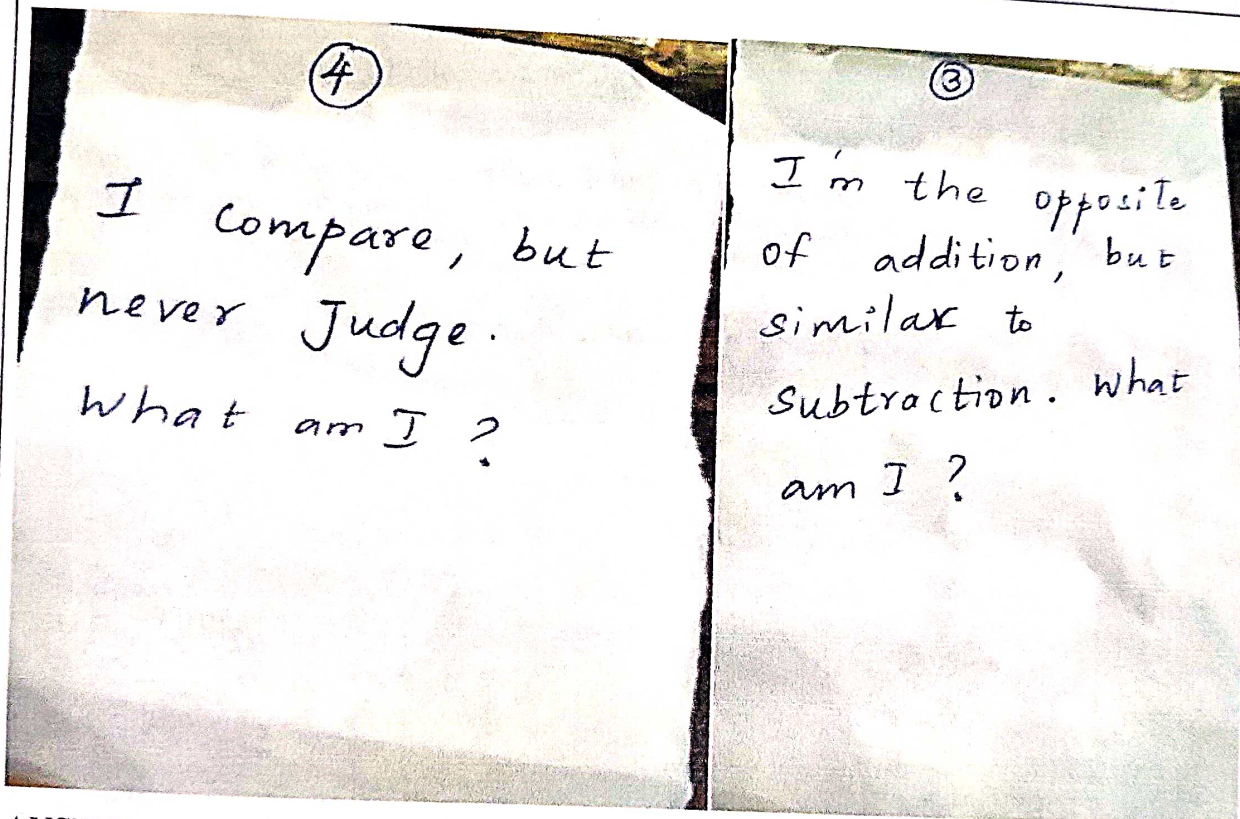 ④
I compare, but
never Judge.
What am I ?
③
I'm the opposite
of addition, but
similar to
subtraction. What
am I ?